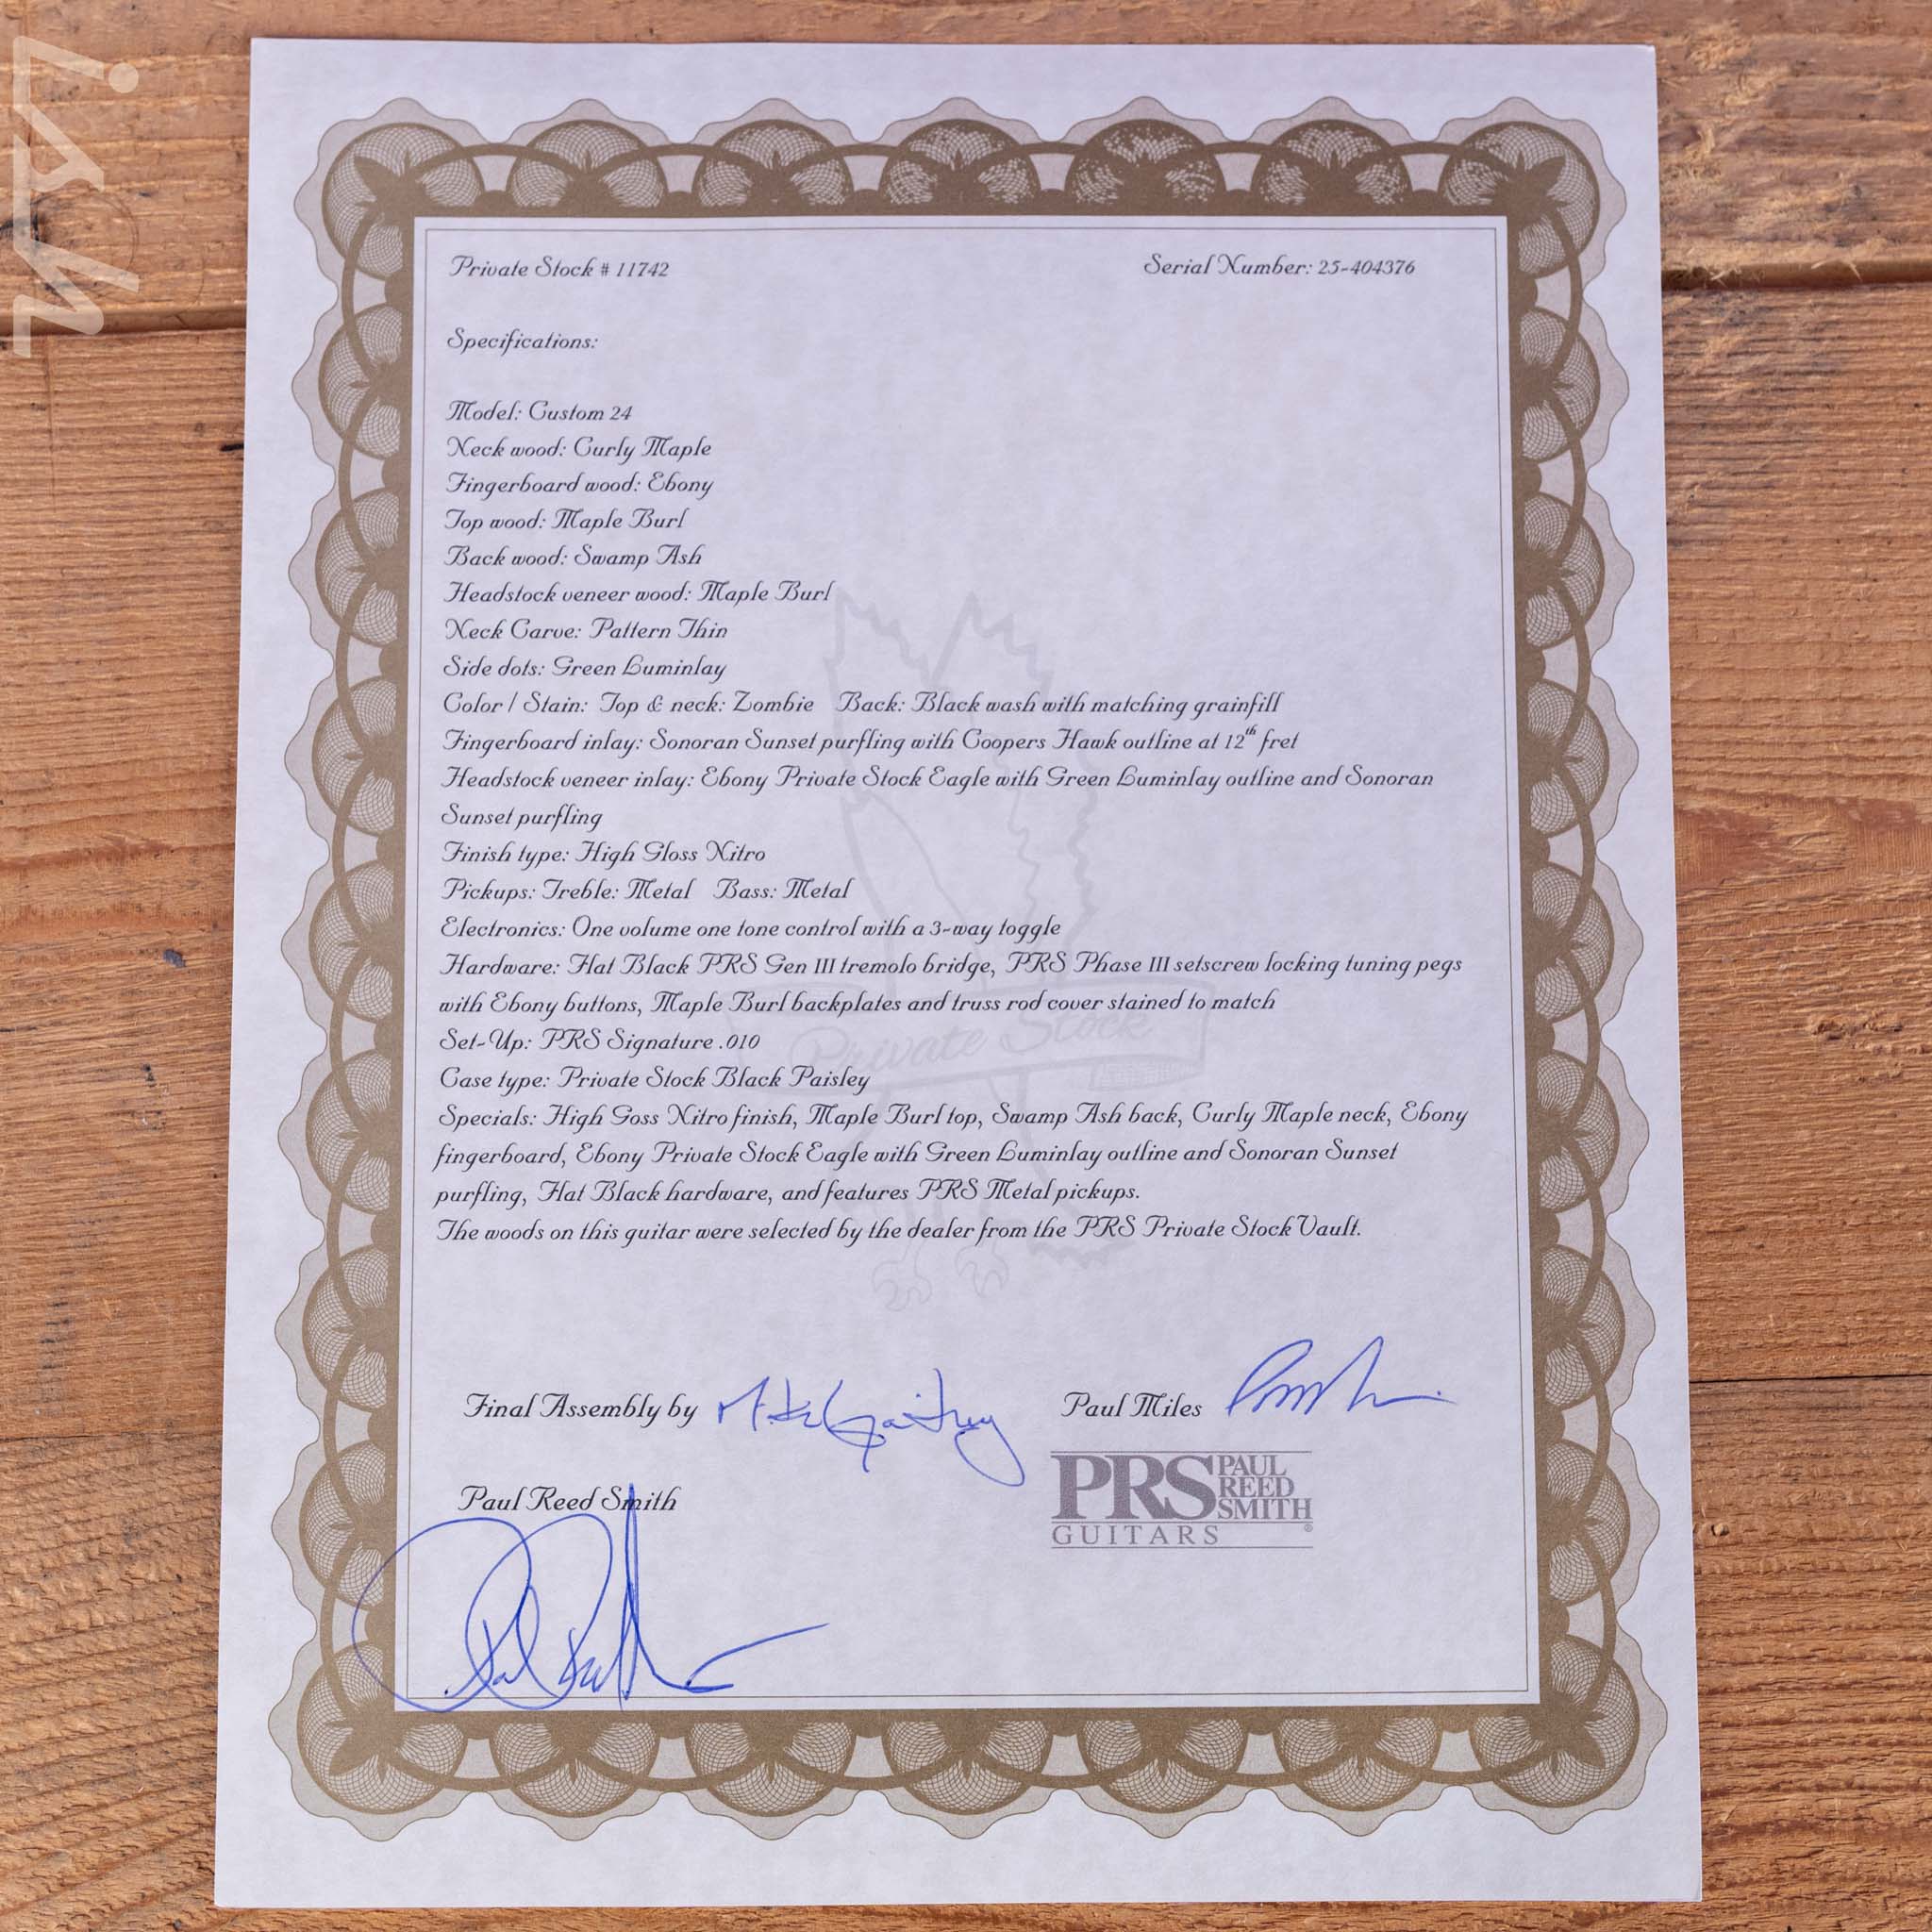 Private Stock # 11742 Serial Number: 25-404376
Specifications:
Model: Custom 24
Neck wood: Curly Maple
Fingerboard wood: Ebony
Top wood: Maple Burl
Back wood: Swamp Ash
Headstock veneer wood: Maple Burl
Neck Carve: Pattern Thin
Side dots: Green Luminlay
Color / Stain: Top & neck: Zombie Back: Black wash with matching grainfill
Fingerboard inlay: Sonoran Sunset purfling with Coopers Hawk outline at 12th fret
Headstock veneer inlay: Ebony Private Stock Eagle with Green Luminlay outline and Sonoran
Sunset purfling
Finish type: High Gloss Nitro
Pickups: Treble: Metal Bass: Metal
Electronics: One volume one tone control with a 3-way toggle
Hardware: Flat Black PRS Gen III tremolo bridge, PRS Phase III setscrew locking tuning pegs
with Ebony buttons, Maple Burl backplates and truss rod cover stained to match
Private Stock
Set-Up: PRS Signature .010
Case type: Private Stock Black Paisley
Specials: High Goss Nitro finish, Maple Burl top, Swamp Ash back, Curly Maple neck, Ebony
fingerboard, Ebony Private Stock Eagle with Green Luminlay outline and Sonoran Sunset
purfling, Flat Black hardware, and features PRS Metal pickups.
The woods on this guitar were selected by the dealer from the PRS Private Stock Vault.
Final Assembly by
Paul Miles
Paul Reed Smith
PRS PAUL
REED
SMITH
GUITARS